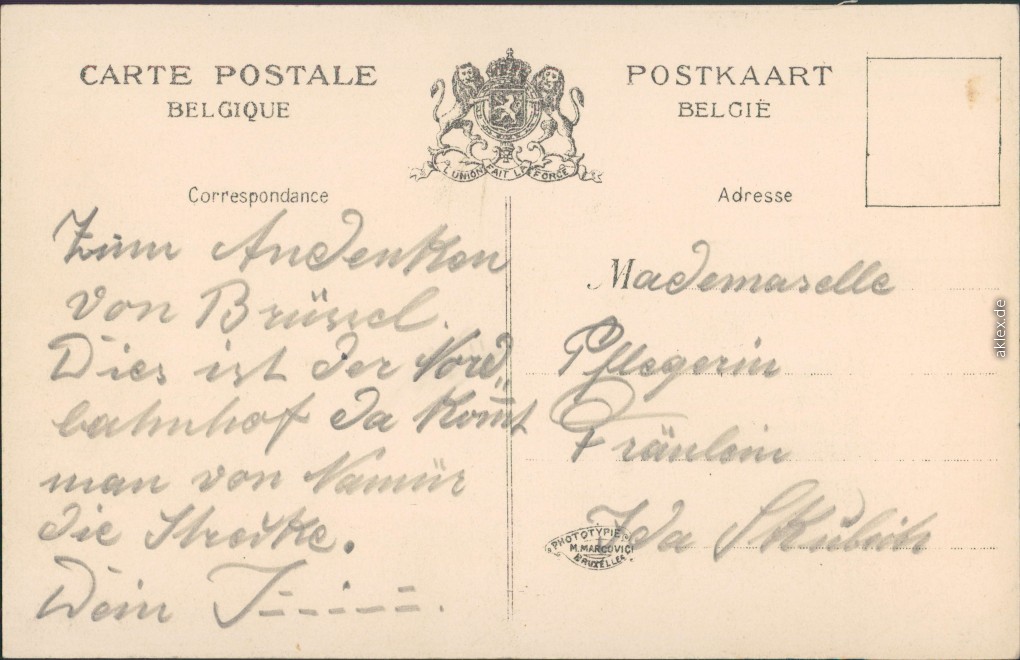 CARTE POSTALE
BELGIQUE
POSTKAART
BELGIË
L'UNION FAIT LA FORCE
Correspondance
Adresse
Zum Andenken
von Brüssel.
Dies ist der Nord„
bahnhof da kom̄t
man von Namür
die Strecke.
Dein
Mademaselle
Pflegerin
Fräulein
Ida
PHOTOTYPIE
M. MARCOVICI
BRUXELLES
aklex.de